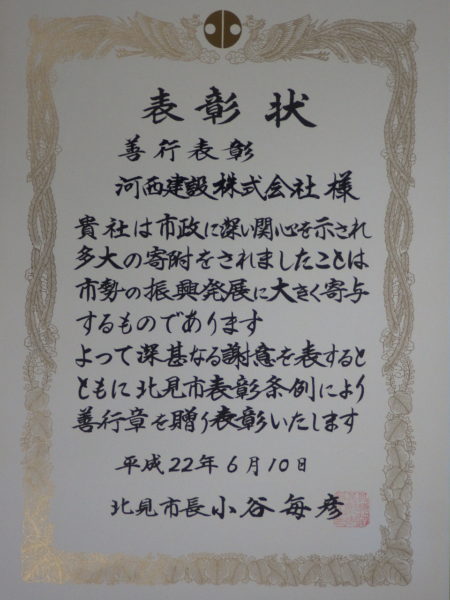 表彰状
善行表彰
河西建設株式会社様
貴社は市政に深い関心を示され
多大の寄附をされましたことは
市勢の振興発展に大きく寄与
するものであります
よって深甚なる謝意を表すると
ともに北見市表彰条例により
善行章を贈り表彰いたします
平成22年6月10日
北見市長小谷毎彦